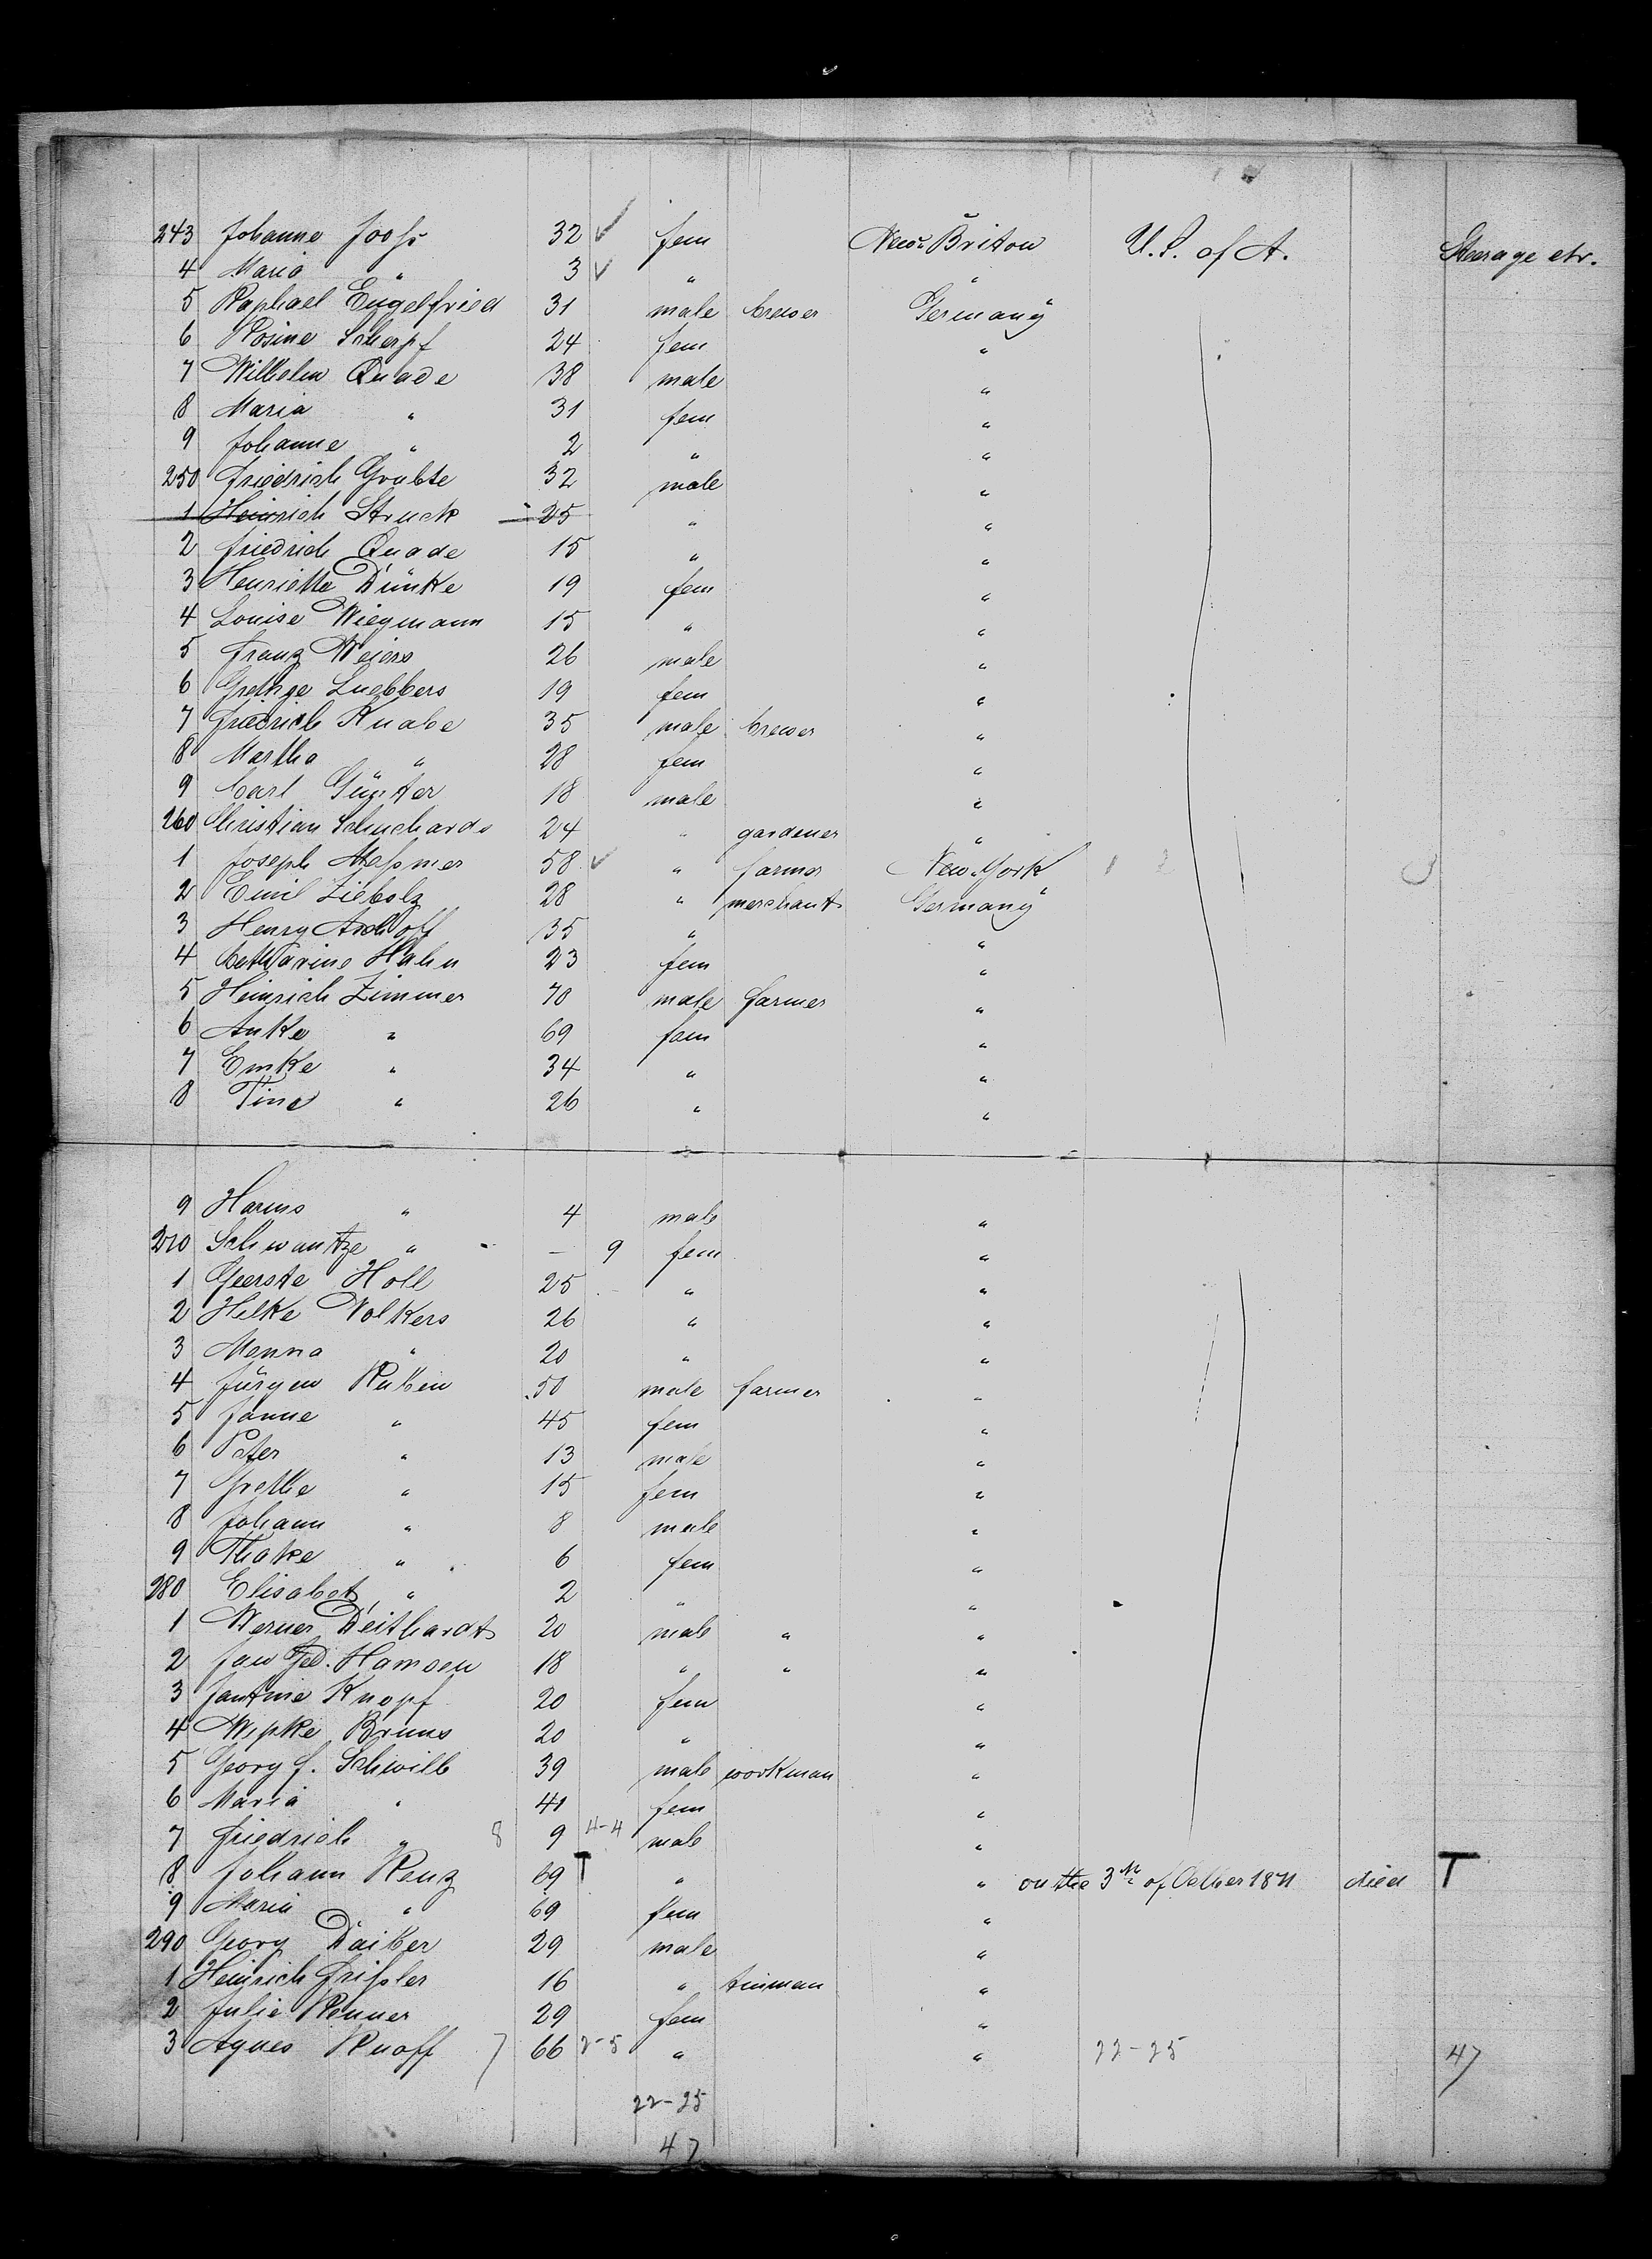 243 Johanne Jooss 32 ✓ fem New Briton U.S. of A. Steerage etc.
4 Maria " 3 ✓ " "
5 Raphael Engelfried 31 male brewer Germany
6 Rosine Scherpf 24 fem "
7 Wilhelm Quade 38 male "
8 Maria " 31 fem "
9 Johanne " 2 " "
250 Friedrich Grabte 32 male "
1 Heinrich Struck 25 " "
2 Friedrich Quade 15 " "
3 Henriette Dünke 19 fem "
4 Louise Wiegmann 15 " "
5 Franz Weiers 26 male "
6 Luebbers 19 fem "
7 Friedrich Knabe 35 male brewer "
8 Martha " 28 fem "
9 Carl Günter 18 male "
260 Christian Schuchards 24 " gardener "
1 Joseph Messmer 58 ✓ " farmer New-York
2 Emil Ziebolz 28 " merchant Germany
3 Henry 35 " "
4 Catharine Hahn 23 fem "
5 Heinrich Zimmer 70 male farmer "
6 Anke " 69 fem "
7 Emke " 34 " "
8 Tina " 26 " "
9 Harms " 4 male "
270 Schwantze " — 9 fem "
1 Geerste Holl 25 " "
2 Hilke Volkers 26 " "
3 Menna " 20 " "
4 Jürgen Ruben 50 male farmer "
5 Janne " 45 fem "
6 Peter " 13 male "
7 Grethe " 15 fem "
8 Johann " 8 male "
9 Thake " 6 fem "
280 Elisabet " 2 " "
1 Werner Deithardt 20 male " "
2 Jan Hamsen 18 " " "
3 Jantine Knopf 20 fem "
4 Wepke Bruns 20 " "
5 Georg J. Schwille 39 male workman "
6 Maria " 41 fem "
7 Friedrich " 8 9 4-4 male "
8 Johann Renz 69 T " " on the 3th of October 1871 died T
9 Maria " 69 fem "
290 Georg Daiker 29 male "
1 Heinrich Frissler 16 " tinman "
2 Julie Renner 29 fem "
3 Agnes Ruoff 7 66 2-5 " " 22-25 47
22-25
47